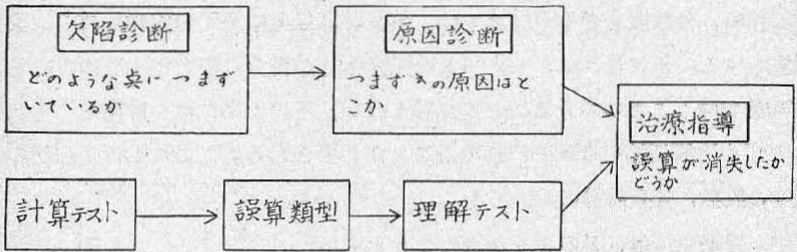 欠陥診断
どのような点につまず
いているか
原因診断
つまずきの原因はど
こか
治療指導
誤算が消失したか
どうか
計算テスト
誤算類型
理解テスト